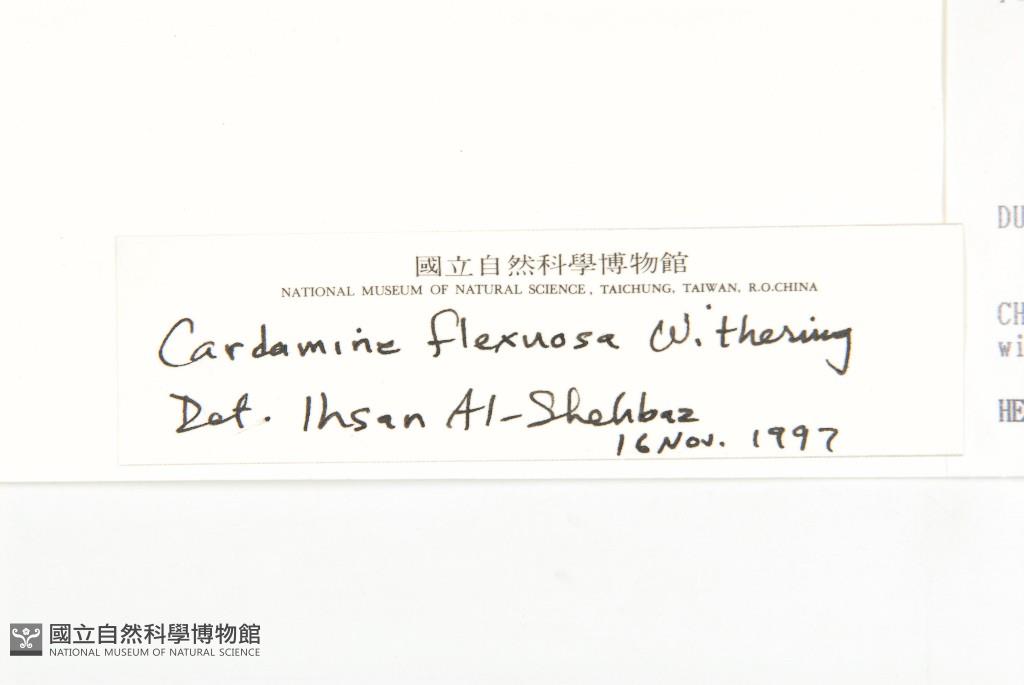 國立自然科學博物館
NATIONAL MUSEUM OF NATURAL SCIENCE, TAICHUNG, TAIWAN, R.O.CHINA
Cardamine flexuosa Withering
Det. Ihsan Al-Shehbaz
16 Nov. 1997
DU
CH
wi
HE
國立自然科學博物館
NATIONAL MUSEUM OF NATURAL SCIENCE